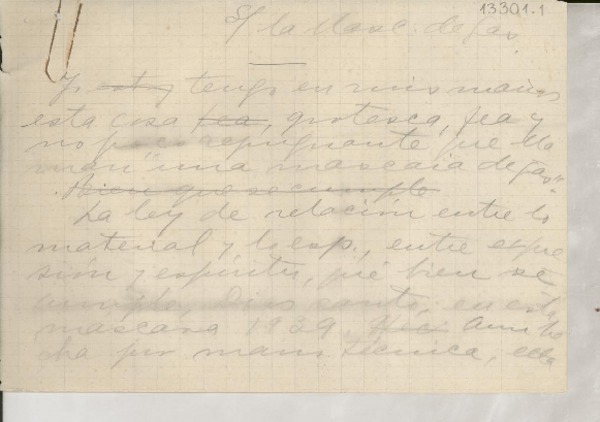 13301.1
S/ la Masc. de gas
Yo estoy tengo en mis manos
esta cosa fea, grotesca, fea y
no poco repugnante que lla
man "una mascara de gas".
Bien que se cumple
La ley de relación entre lo
material y lo esp., entre expre
sión y espíritu, qué bien se
cumple, Dios santo, en esta
mascara 1939. Aun he
cha por mano técnica, ella